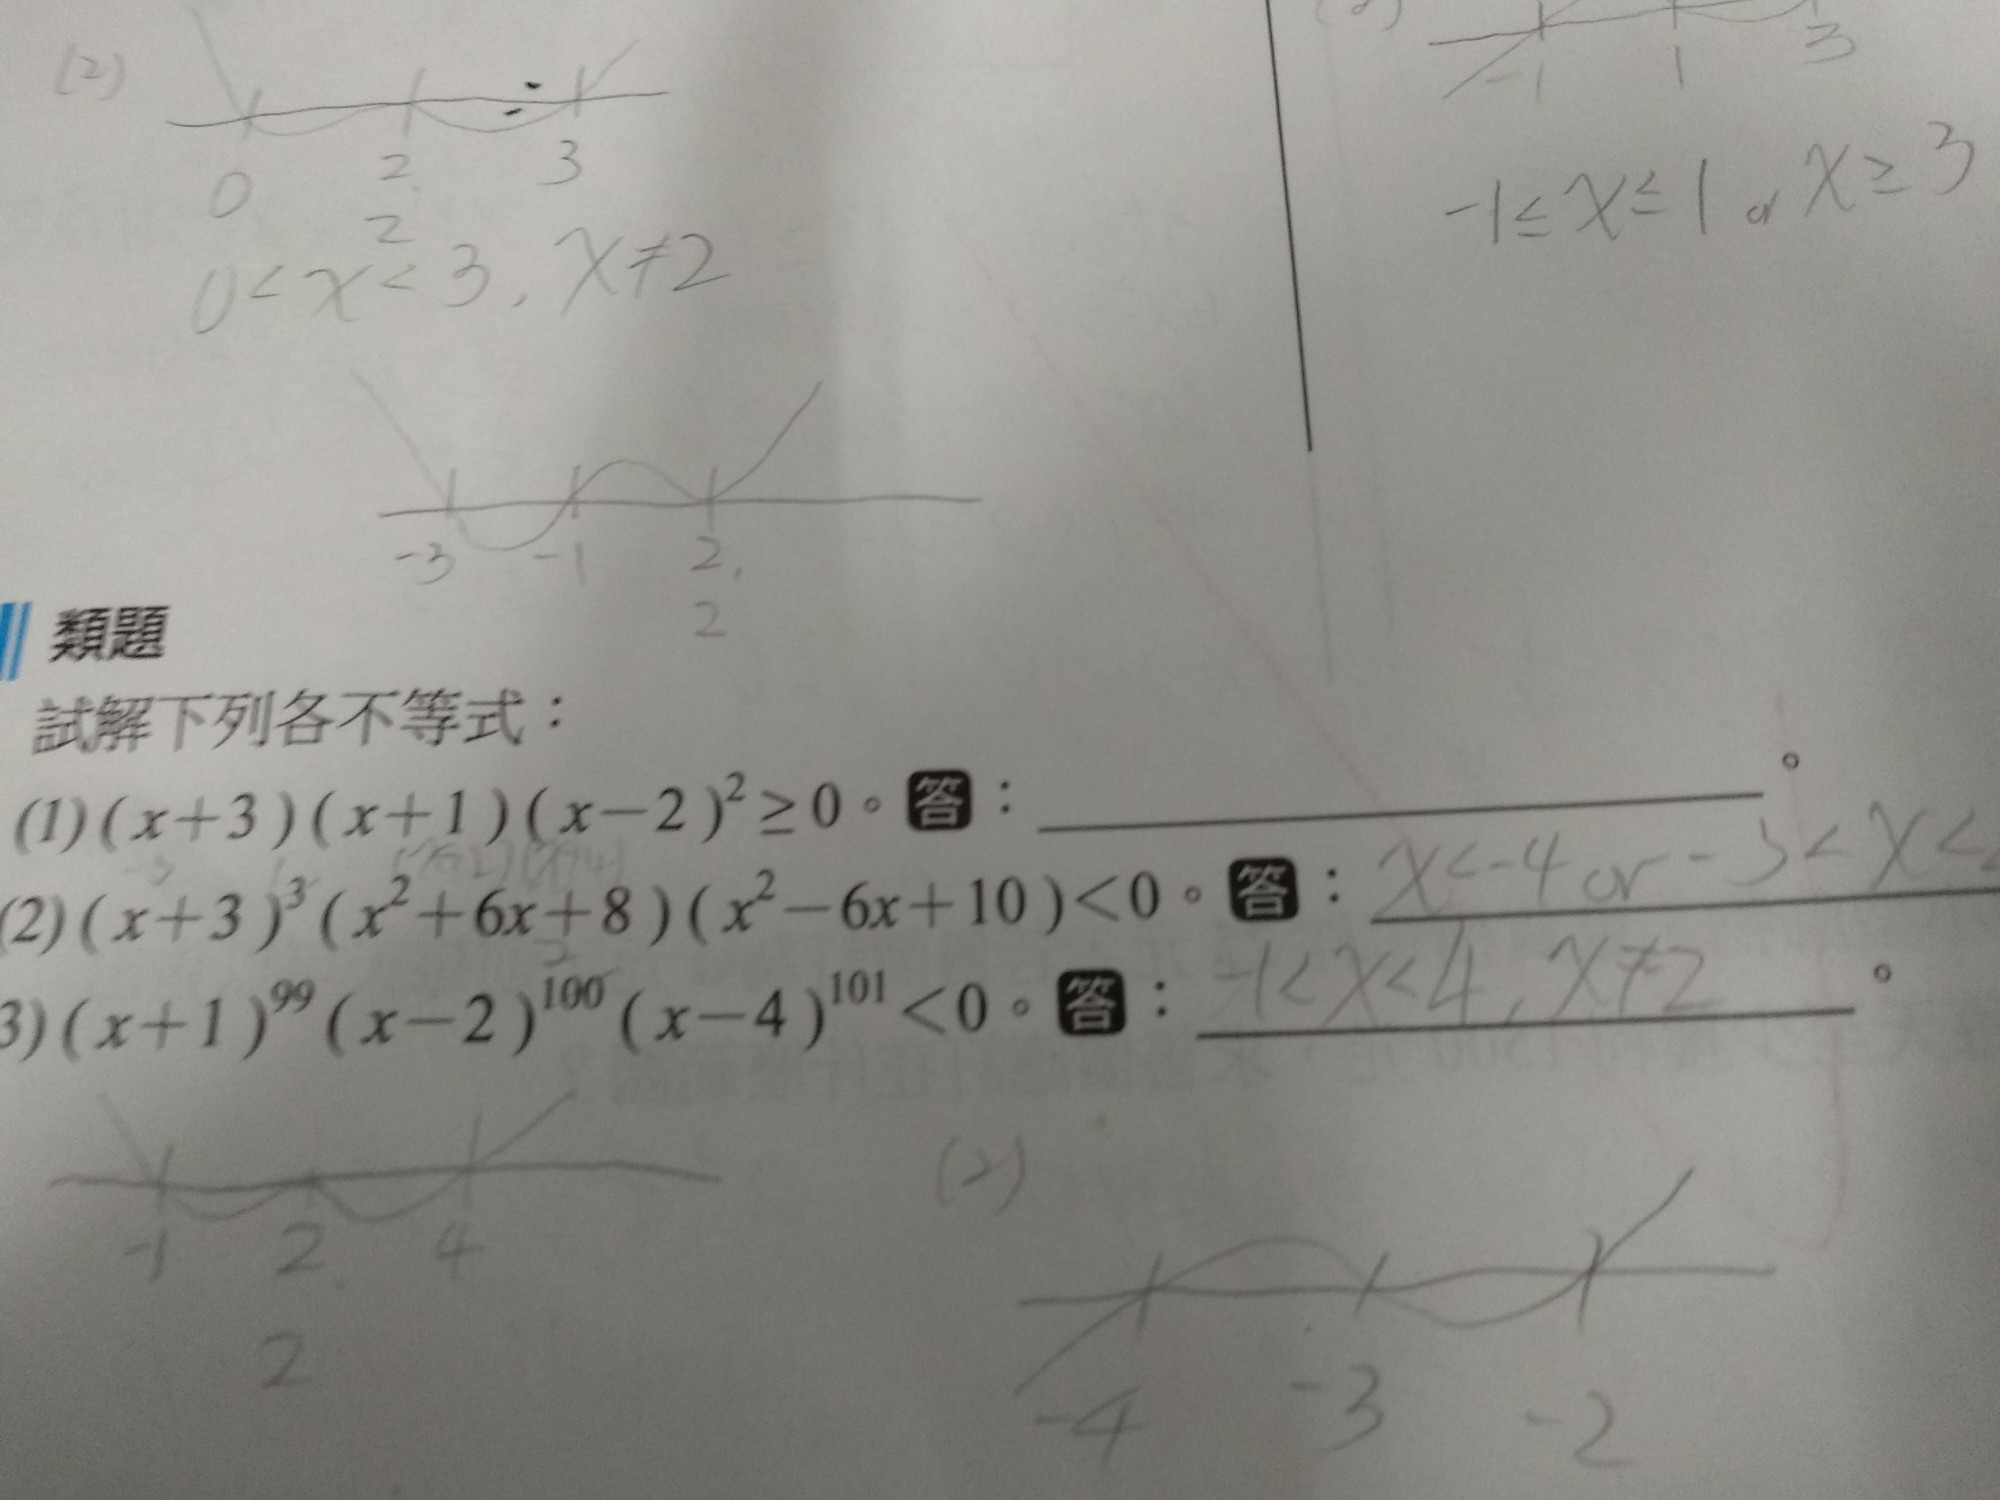 (2)
0 2 3
2
0<x<3, x≠2
-1 1 3
-1≤x≤1 or x≥3
-3 -1 2,
2
類題
試解下列各不等式：
(1)(x+3)(x+1)(x-2)²≥0。答：。
(2)(x+3)³(x²+6x+8)(x²-6x+10)<0。答：x<-4 or -3<x<
3)(x+1)⁹⁹(x-2)¹⁰⁰(x-4)¹⁰¹<0。答：-1<x<4, x≠2。
-1 2 4
2
(2)
-4 -3 -2